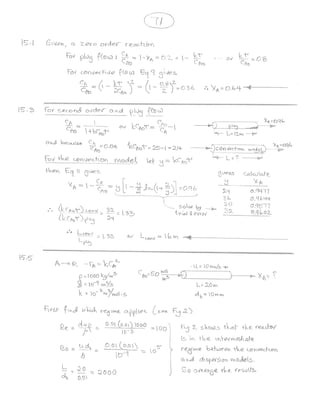 71
15.1 Given, a zero order reaction
For plug flow: CA/CAo = 1-XA = 0.2 = 1 - kt/CAo ... or kt/CAo = 0.8
For convective flow Eq 9 gives
CA/CAo = (1 - kt/2CAo)² = (1 - 0.8/2)² = 0.36 ∴ XA = 0.64
15.3 For second order and plug flow
CA/CAo = 1/(1+kCAot) or kCAot = CAo/CA - 1
plug
L=12m
XA=0.96
and because CA/CAo = 0.04 kCAot = 25-1 = 24
convection model
XA=0.96
L=?
For the convection model let y = kCAot
then Eq gives
XA = 1 - CA/CAo = y[1 - y/2 ln(1+2/y)] = 0.96
solve by trial & error
guess y calculate XA
24
32
∴ (kCAot)conv/(kCAot)plug = 32/24 = 1.33
∴ Lconv/Lplug = 1.33 or Lconv = 16 m
15.5
A→R, -rA = kCA²
ρ=1000 kg/m³
CAo=50 mol/m³
u=10mm/s
XA=?
L=20m
dt=10mm
First find which regime applies (see Fig 2)
Re = dup/μ = 0.01(0.01)1000/10⁻³ = 100
Bo = udt/D = 0.01(0.01)/10⁻⁹ = 10⁵
L/dt = 20/0.01 = 2000
Fig 2 shows that the reactor
is in the intermediate
regime between the convection
and dispersion models.
So average the results.